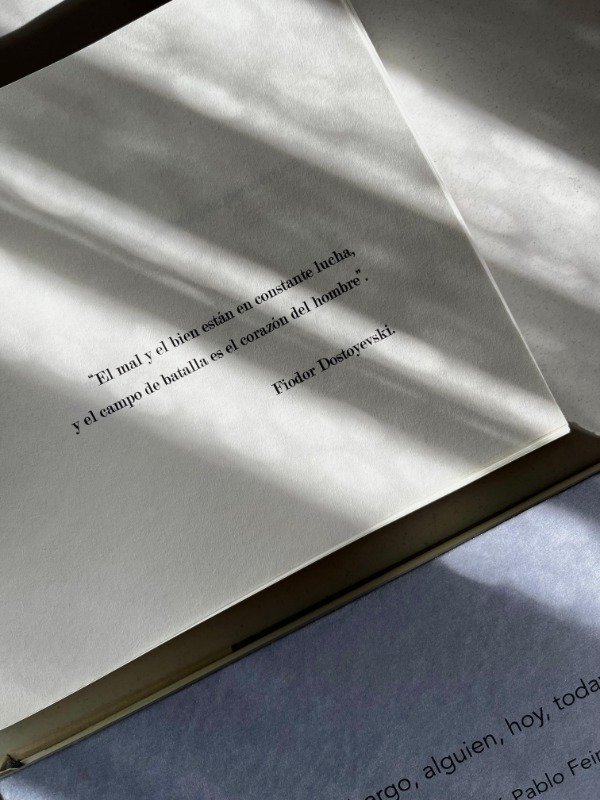 “El mal y el bien están en constante lucha,
y el campo de batalla es el corazón del hombre”.
Fiodor Dostoyevski.
alguien, hoy, toda
Pablo